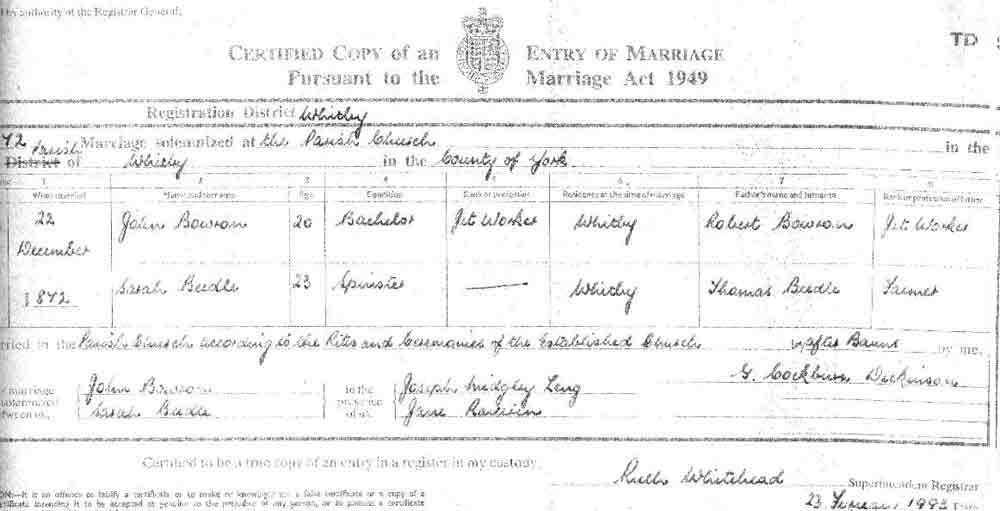 by authority of the Registrar General:
CERTIFIED COPY of an ENTRY OF MARRIAGE
Pursuant to the Marriage Act 1949
TD
Registration District Whitby
72 Marriage solemnized at the Parish Church in the
Parish
District of Whitby in the County of York
1 2 3 4 5 6 7 8
When married Name and surname Age Condition Rank or profession Residence at the time of marriage Father's name and surname Rank or profession of father
22 John Bowron 20 Bachelor Jet Worker Whitby Robert Bowron Jet Worker
December
1872 Sarah Beedle 23 Spinster Whitby Thomas Beedle Farmer
rried in the Parish Church according to the Rites and Ceremonies of the Established Church after Banns by me,
G. Cockburn Dickinson
marriage John Bowron in the Joseph Midgley Leng
solemnized presence
tween us, Sarah Beedle of us, Jane
Certified to be a true copy of an entry in a register in my custody.
Whitehead Superintendent Registrar
23 1993 Date
It is an offence to falsify a certificate or to make or knowingly use a false certificate or a copy of a
certificate intending it to be accepted as genuine to the prejudice of any person, or to possess a certificate